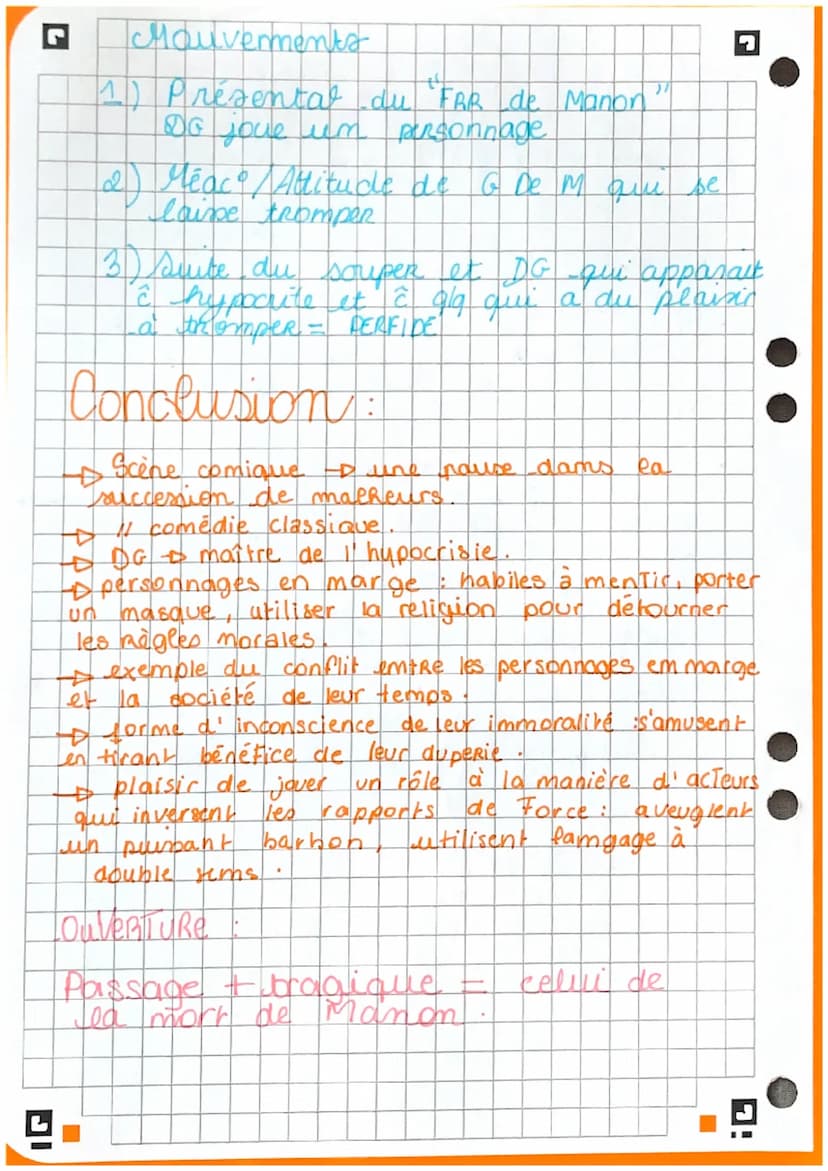 Mouvements
1) Présentat° du "FRR de Manon"
DG joue um personnage
2) Réac°/Attitude de G De M qui se
laisse tromper
3) Suite du souper et DG qui apparaît
ĉ hypocrite et ĉ qlq qui a du plaisir
à tromper = PERFIDE
Conclusion :
→ Scène comique → une pause dans la
succession de malheurs.
→ // comédie classique.
→ DG → maître de l'hypocrisie.
→ personnages en marge : habiles à mentir, porter
un masque, utiliser la religion pour détourner
les règles morales.
→ exemple du conflit entre les personnages em marge
et la société de leur temps.
→ forme d'inconscience de leur immoralité : s'amusent
en tirant bénéfice de leur duperie.
→ plaisir de jouer un rôle à la manière d'acteurs
qui inversent les rapports de Force : aveuglent
un puissant barbon, utilisent langage à
double sens.
OUVERTURE :
Passage + tragique = celui de
la mort de Manon.